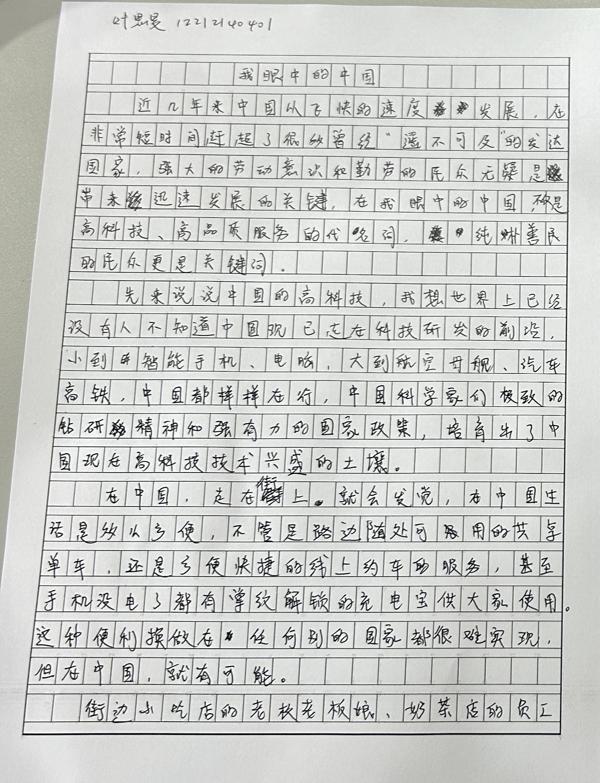 叶思旻 1221240401
我眼中的中国
近几年来中国以飞快的速度发展，在
非常短时间赶超了很多曾经"遥不可及"的发达
国家，强大的劳动意识和勤劳的民众无疑是
带来迅速发展的关键，在我眼中的中国，不只是
高科技、高品质服务的代名词，纯朴善良
的民众更是关键词。
先来说说中国的高科技，我想世界上已经
没有人不知道中国现已走在科技研发的前沿，
小到智能手机、电脑，大到航空母舰、汽车
高铁，中国都样样在行，中国科学家们极致的
钻研精神和强有力的国家政策，培育出了中
国现在高科技技术兴盛的土壤。
在中国，走在街上。就会发觉，在中国生
活是如此方便，不管是路边随处可用的共享
单车，还是方便快捷的线上约车的服务，甚至
手机没电了都有掌纹解锁的充电宝供大家使用。
这种便利操做在任何别的国家都很难实现，
但在中国，就有可能。
街边小吃店的老板老板娘、奶茶店的员工